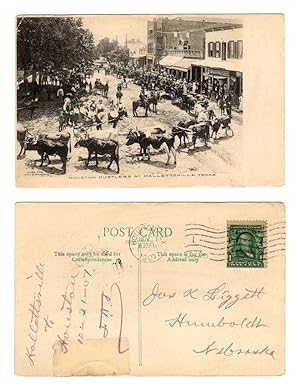 HOUSTON HUSTLERS AT HALLETTSVILLE TEXAS
POST CARD
This space is for
Correspondence
This space is for the
Address only
Hallettsville
to
Houston
10-21-07
Jos K Liggett
Humboldt
Nebraska